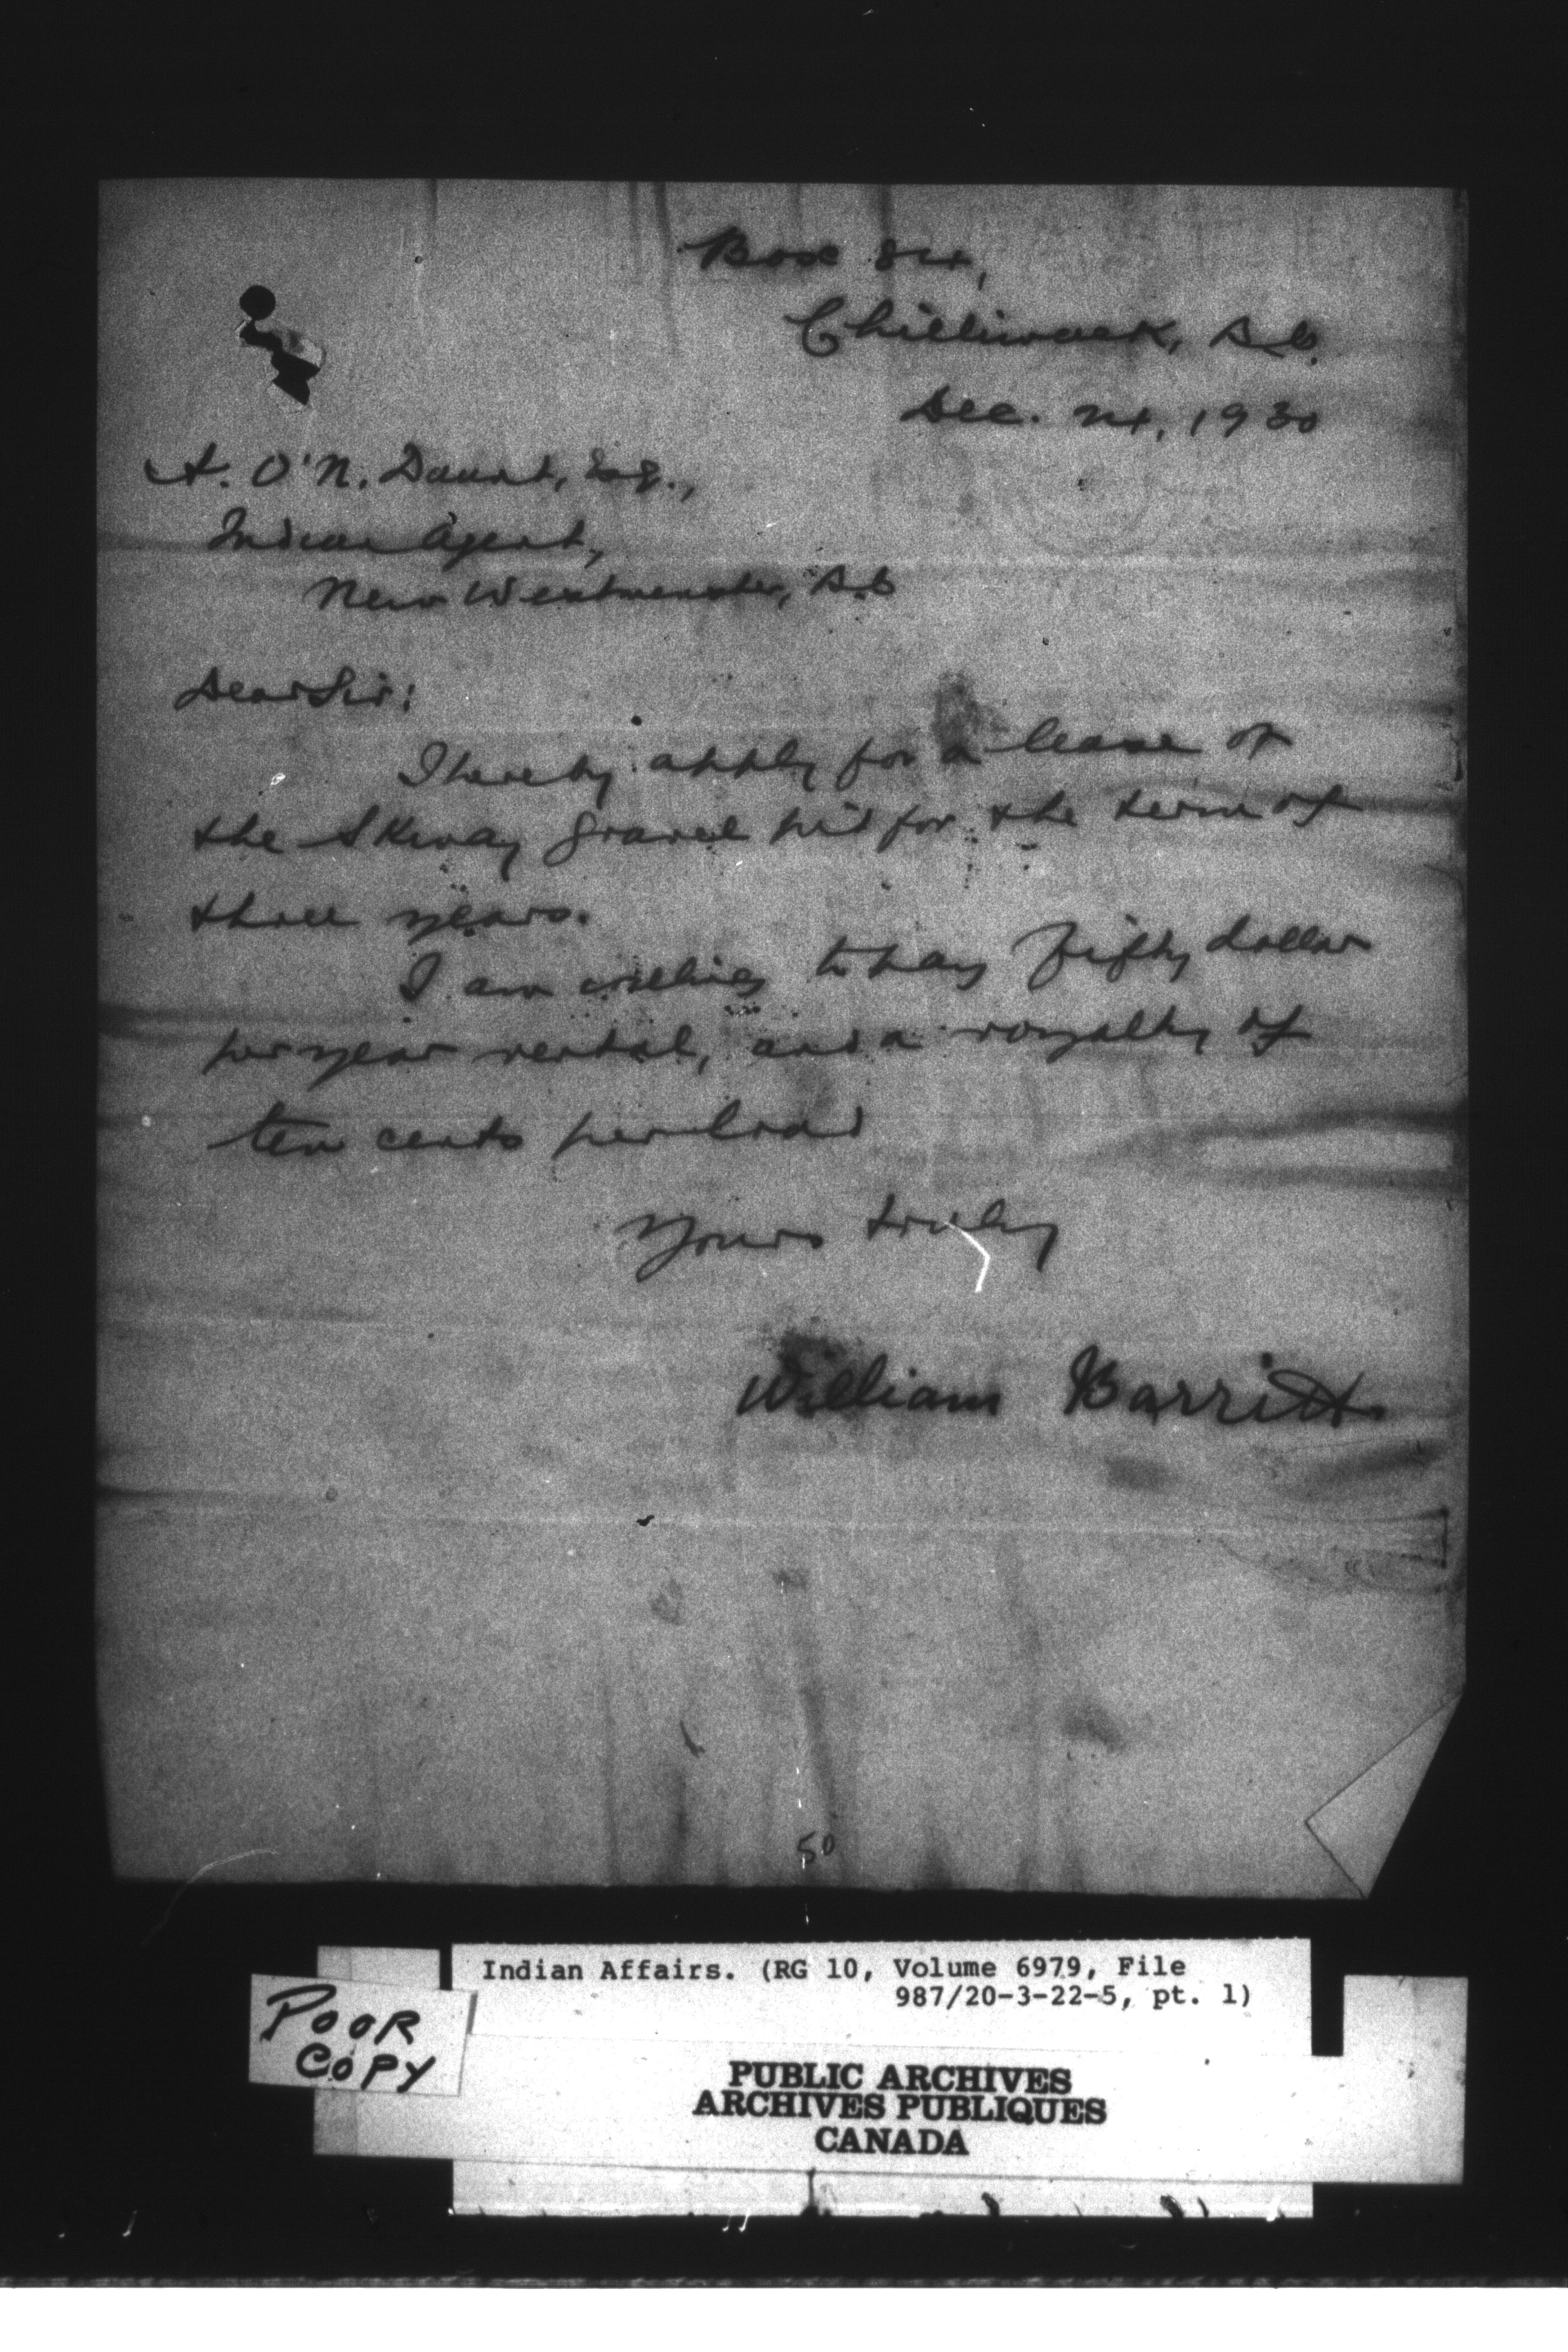 Box 814,
Chilliwack, B.C.
Dec. 24, 1930
A. O'N. Daunt, Esq.,
Indian Agent,
New Westminster, B.C
Dear Sir:
I hereby apply for a lease of
the Skway gravel pit for the term of
three years.
I am willing to pay fifty dollars
per year rental, and a royalty of
ten cents per load
Yours truly
William Barritt
50
Indian Affairs. (RG 10, Volume 6979, File
987/20-3-22-5, pt. 1)
POOR
COPY
PUBLIC ARCHIVES
ARCHIVES PUBLIQUES
CANADA